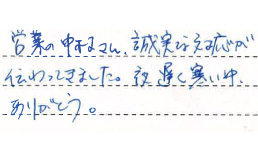 営業の中村さん、誠実な対応が
伝わってきました。夜遅く寒い中、
ありがとう。